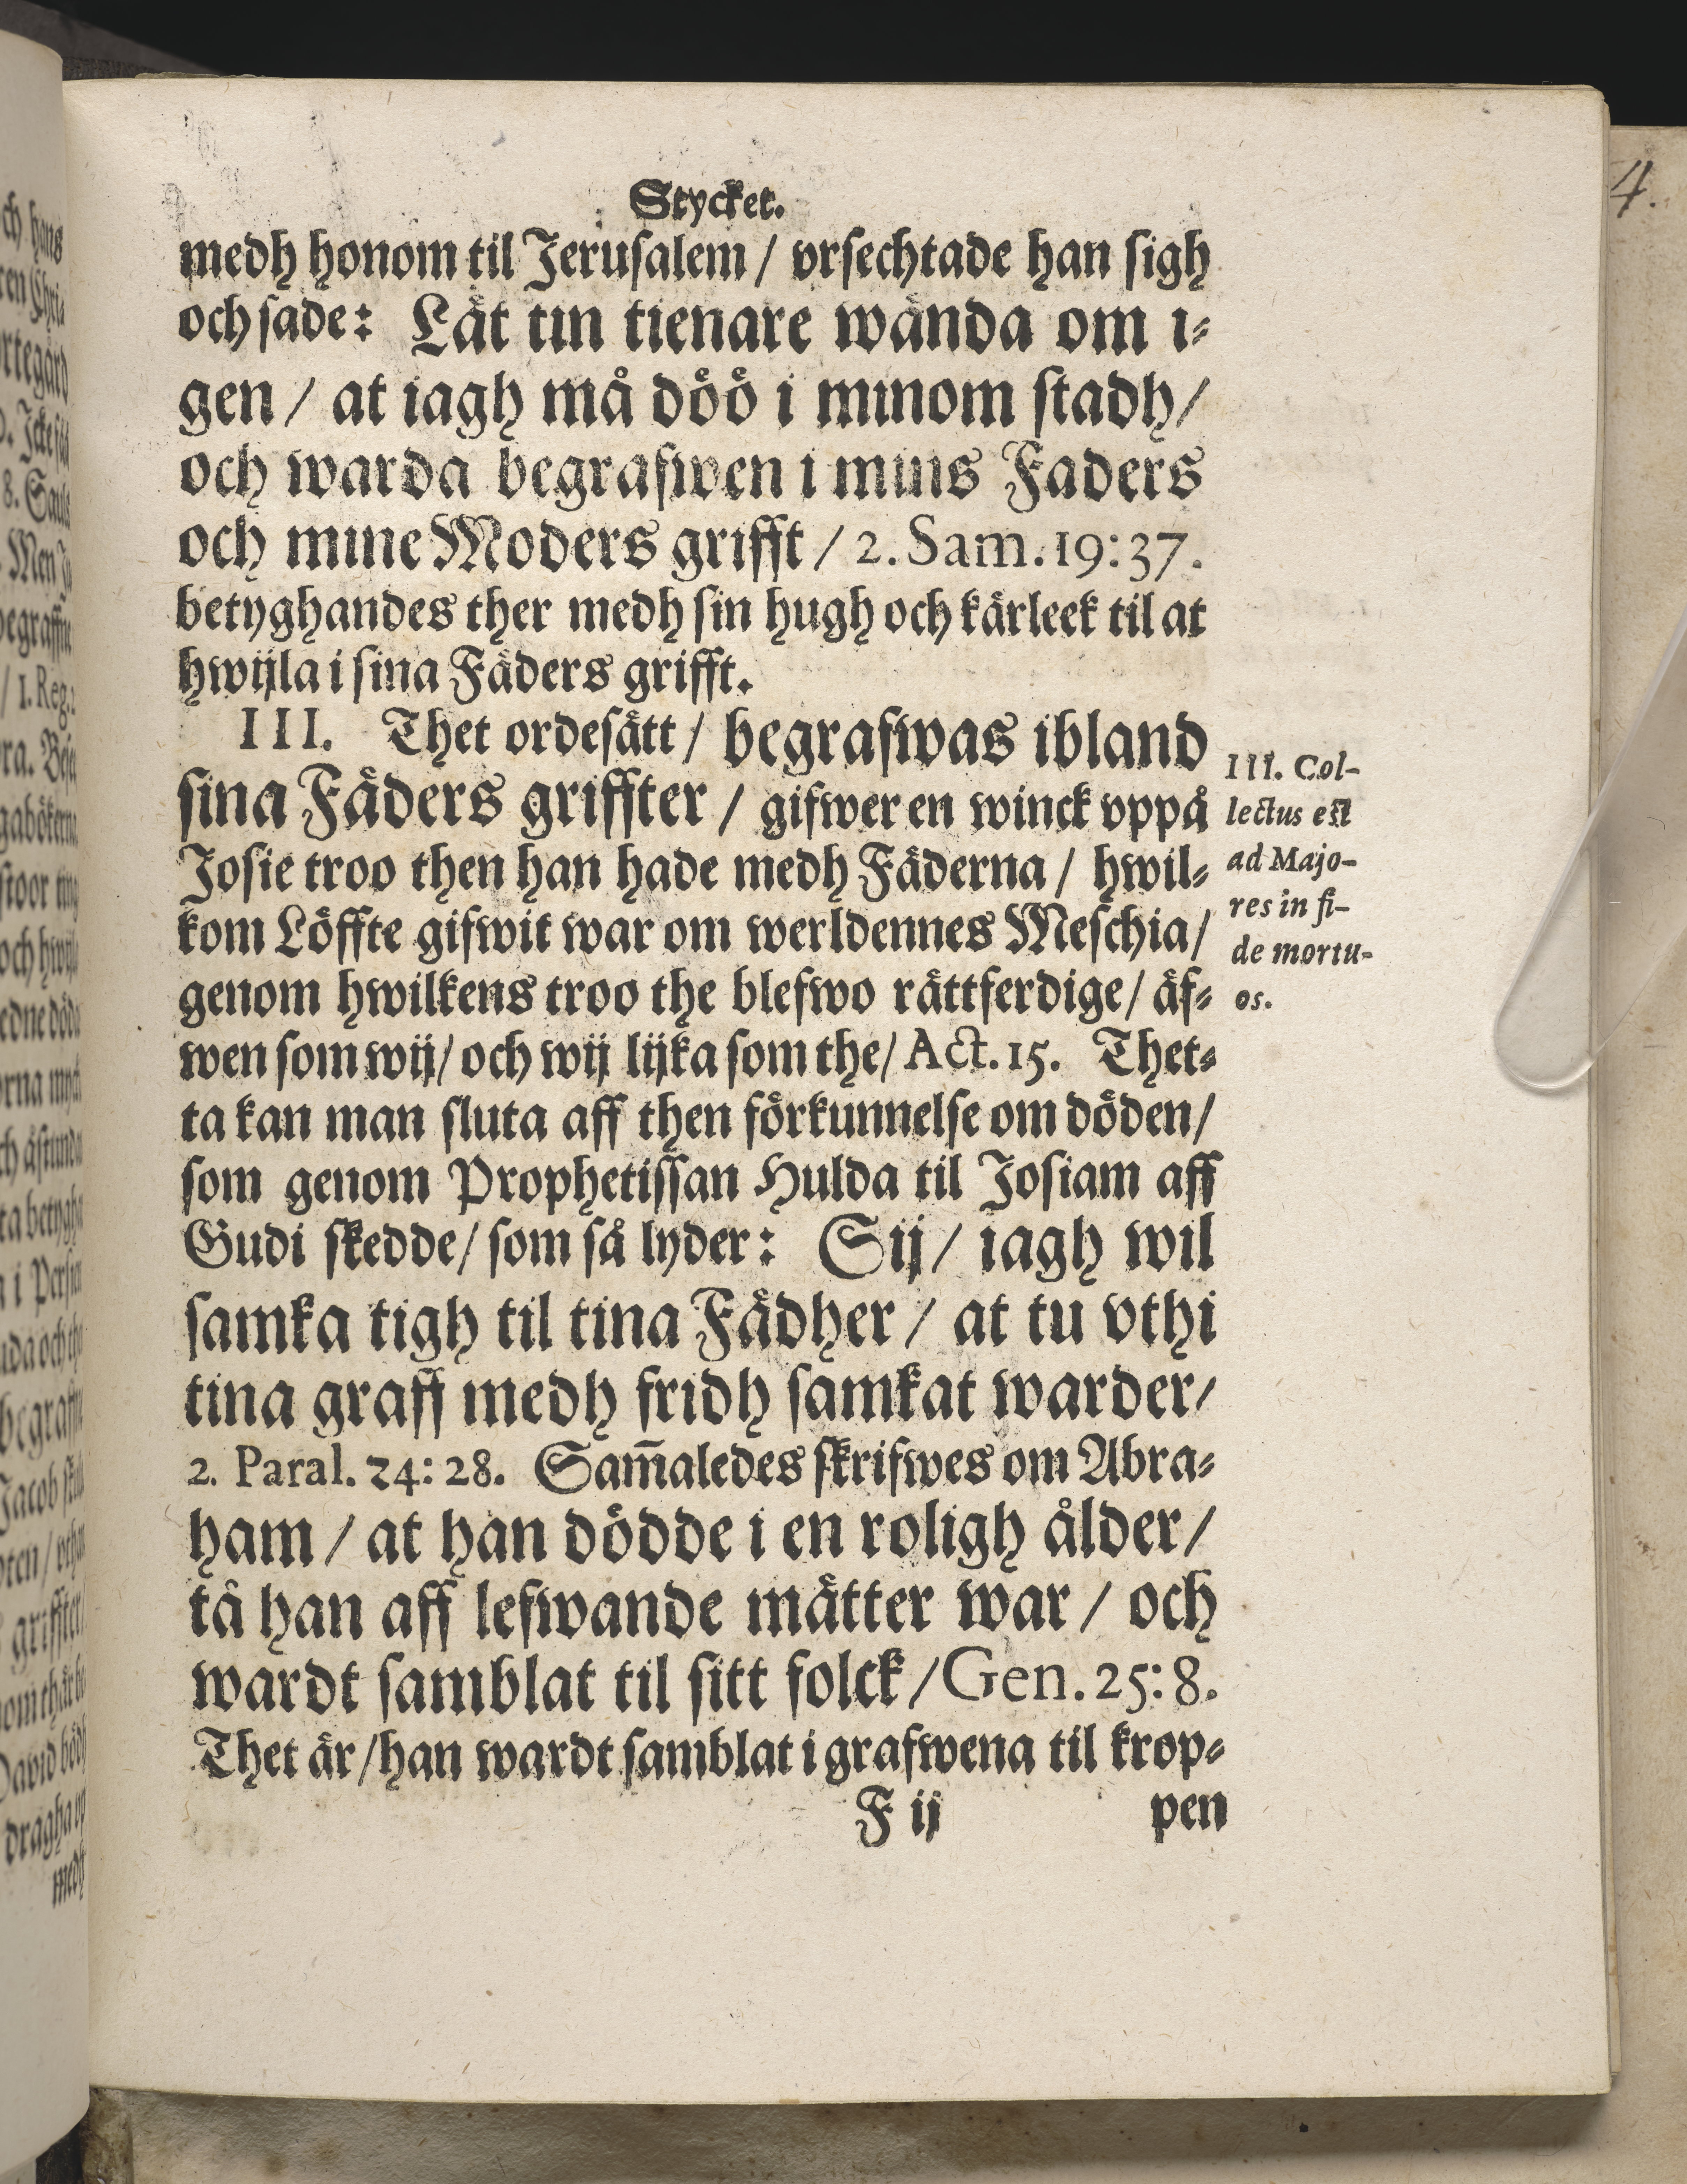 Stycket.
medh honom til Jerusalem / vrsechtade han sigh
och sade: Lät tin tienare wända om i-
gen / at iagh må döö i minom stadh /
och warda begrafwen i mins Faders
och mine Moders grifft / 2. Sam. 19: 37.
betyghandes ther medh sin hugh och kärleek til at
hwijla i sina Fäders grifft.
III. Thet ordesätt / begrafwas ibland
sina Fäders griffter / gifwer en winck vppå
Josie troo then han hade medh Fäderna / hwil-
kom Löffte gifwit war om werldennes Meschia /
genom hwilkens troo the blefwo rättferdige / äf-
wen som wij / och wij lijka som the / Act. 15. Thet-
ta kan man sluta aff then förkunnelse om döden /
som genom Prophetissan Hulda til Josiam aff
Gudi skedde / som så lyder: Sij / iagh wil
samka tigh til tina Fädher / at tu vthi
tina graff medh fridh samkat warder /
2. Paral. 24: 28. Sam̄aledes skrifwes om Abra-
ham / at han dödde i en roligh ålder /
tå han aff lefwande mätter war / och
wardt samblat til sitt folck / Gen. 25: 8.
Thet är / han wardt samblat i grafwena til krop-
F ij pen
III. Col-
lectus est
ad Majo-
res in fi-
de mortu-
os.
4.